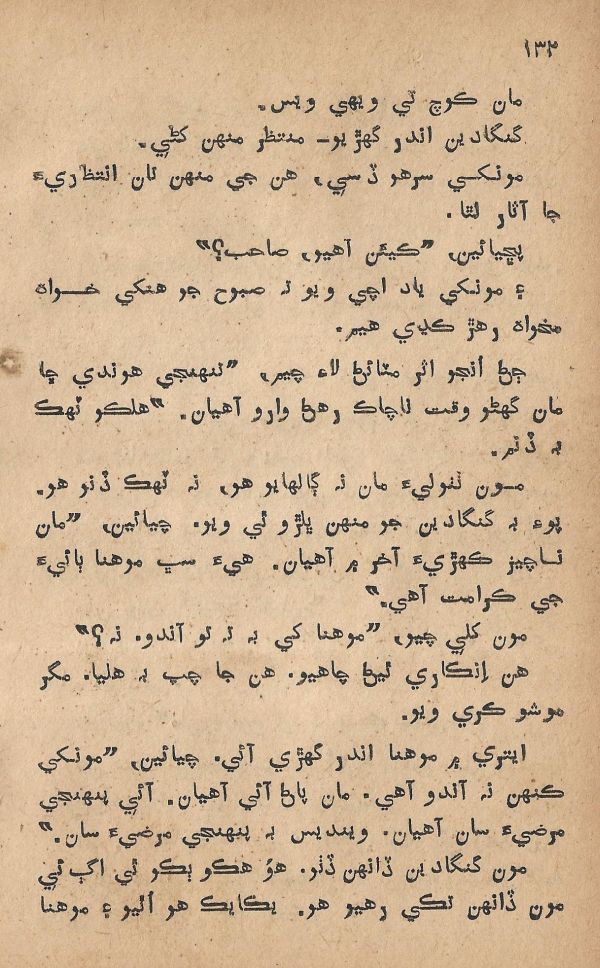 ١٣٢
مان ڪوچ تي ويهي ويس.
گنگادين اندر گهڙيو— منتظر منهن کڻي.
مونکي سرهو ڏسي، هن جي منهن تان انتظاريءَ
جا آثار لٿا.
پڇيائين، ”ڪيئن آهيو، صاحب؟“
۽ مونکي ياد اچي ويو ته صبوح جو هنکي خواه
مخواه رهڙ ڪڍي هيم.
ڄڻ اُنجو اثر مٽائڻ لاءِ چيم، ”تنهنجي هوندي ڇا
مان گهڻو وقت ناچاڪ رهڻ وارو آهيان.“ هلڪو ٽهڪ
به ڏنم.
مون ٺٺوليءَ مان نه ڳالهايو هو، نه ٽهڪ ڏنو هو.
پوءِ به گنگادين جو منهن ڀلڙو ٿي ويو. چيائين، ”مان
ناچيز ڪهڙيءَ آخر ۾ آهيان. هيءَ سڀ موهنا ٻائيءَ
جي ڪرامت آهي.“
مون کلي چيو، ”موهنا کي به نه تو آندو. نه؟“
هن اِنڪاري ٿيڻ چاهيو. هن جا چپ به هليا. مگر
موشو ڪري ويو.
ايتري ۾ موهنا اندر گهڙي آئي. چيائين، ”مونکي
ڪنهن نه آندو آهي. مان پاڻ آئي آهيان. آئي پنهنجي
مرضيءَ سان آهيان. وينديس به پنهنجي مرضيءَ سان.“
مون گنگادين ڏانهن ڏٺو. هوُ هڪو ٻڪو ٿي اڳ ئي
مون ڏانهن تڪي رهيو هو. يڪايڪ هو اُٿيو ۽ موهنا